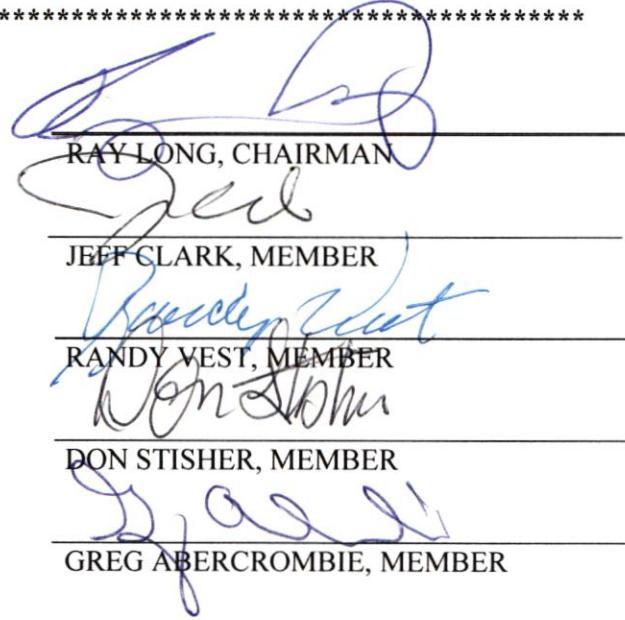 ****************************************
RAY LONG, CHAIRMAN
JEFF CLARK, MEMBER
Randy Vest
RANDY VEST, MEMBER
Don Stisher
DON STISHER, MEMBER
GREG ABERCROMBIE, MEMBER